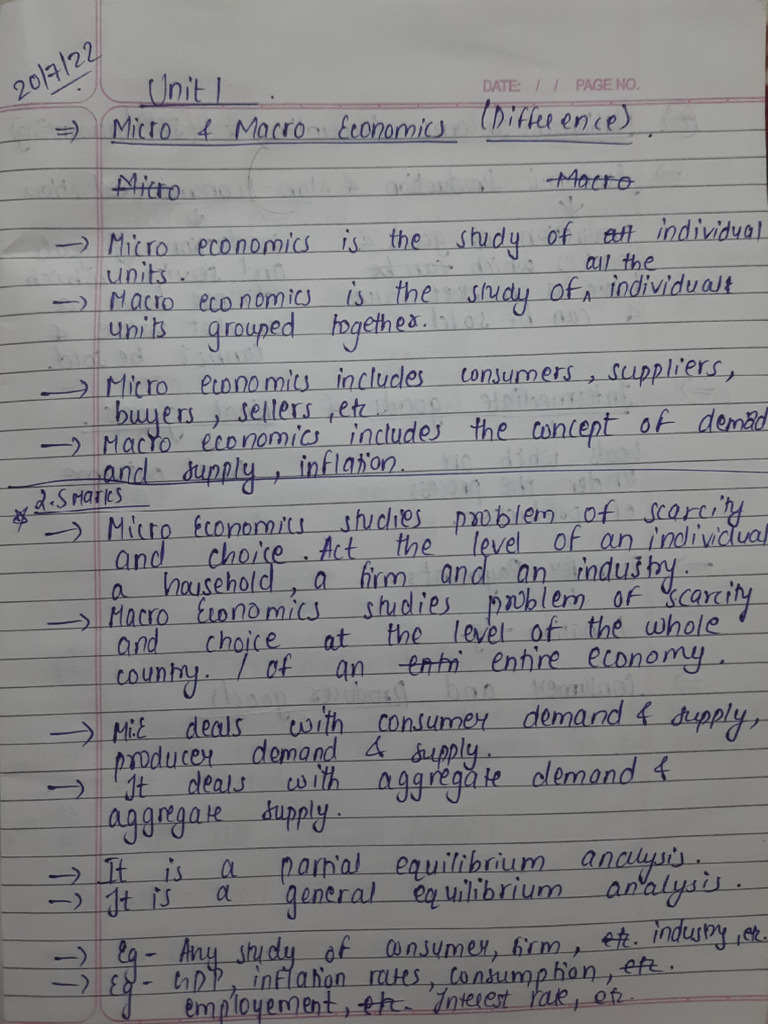 20/7/22
Unit 1
DATE: / / PAGE NO.
=> Micro & Macro Economics (Difference).
Micro Macro
-> Micro economics is the study of all individual
units.
-> Macro economics is the study of all the individual
units grouped together.
-> Micro economics includes consumers, suppliers,
buyers, sellers, etc
-> Macro economics includes the concept of demand
and supply, inflation.
* 2.5 Marks
-> Micro Economics studies problem of scarcity
and choice. Act the level of an individual
a household, a firm and an industry.
-> Macro Economics studies problem of scarcity
and choice at the level of the whole
country. / of an entri entire economy.
-> Mi.E deals with consumer demand & supply,
producer demand & supply.
-> It deals with aggregate demand &
aggregate supply.
-> It is a partial equilibrium analysis.
-> It is a general equilibrium analysis.
-> Eg - Any study of consumer, firm, etc. industry, etc.
-> Eg - GDP, inflation rates, consumption, etc.
employement, etc. Interest rate, etc.